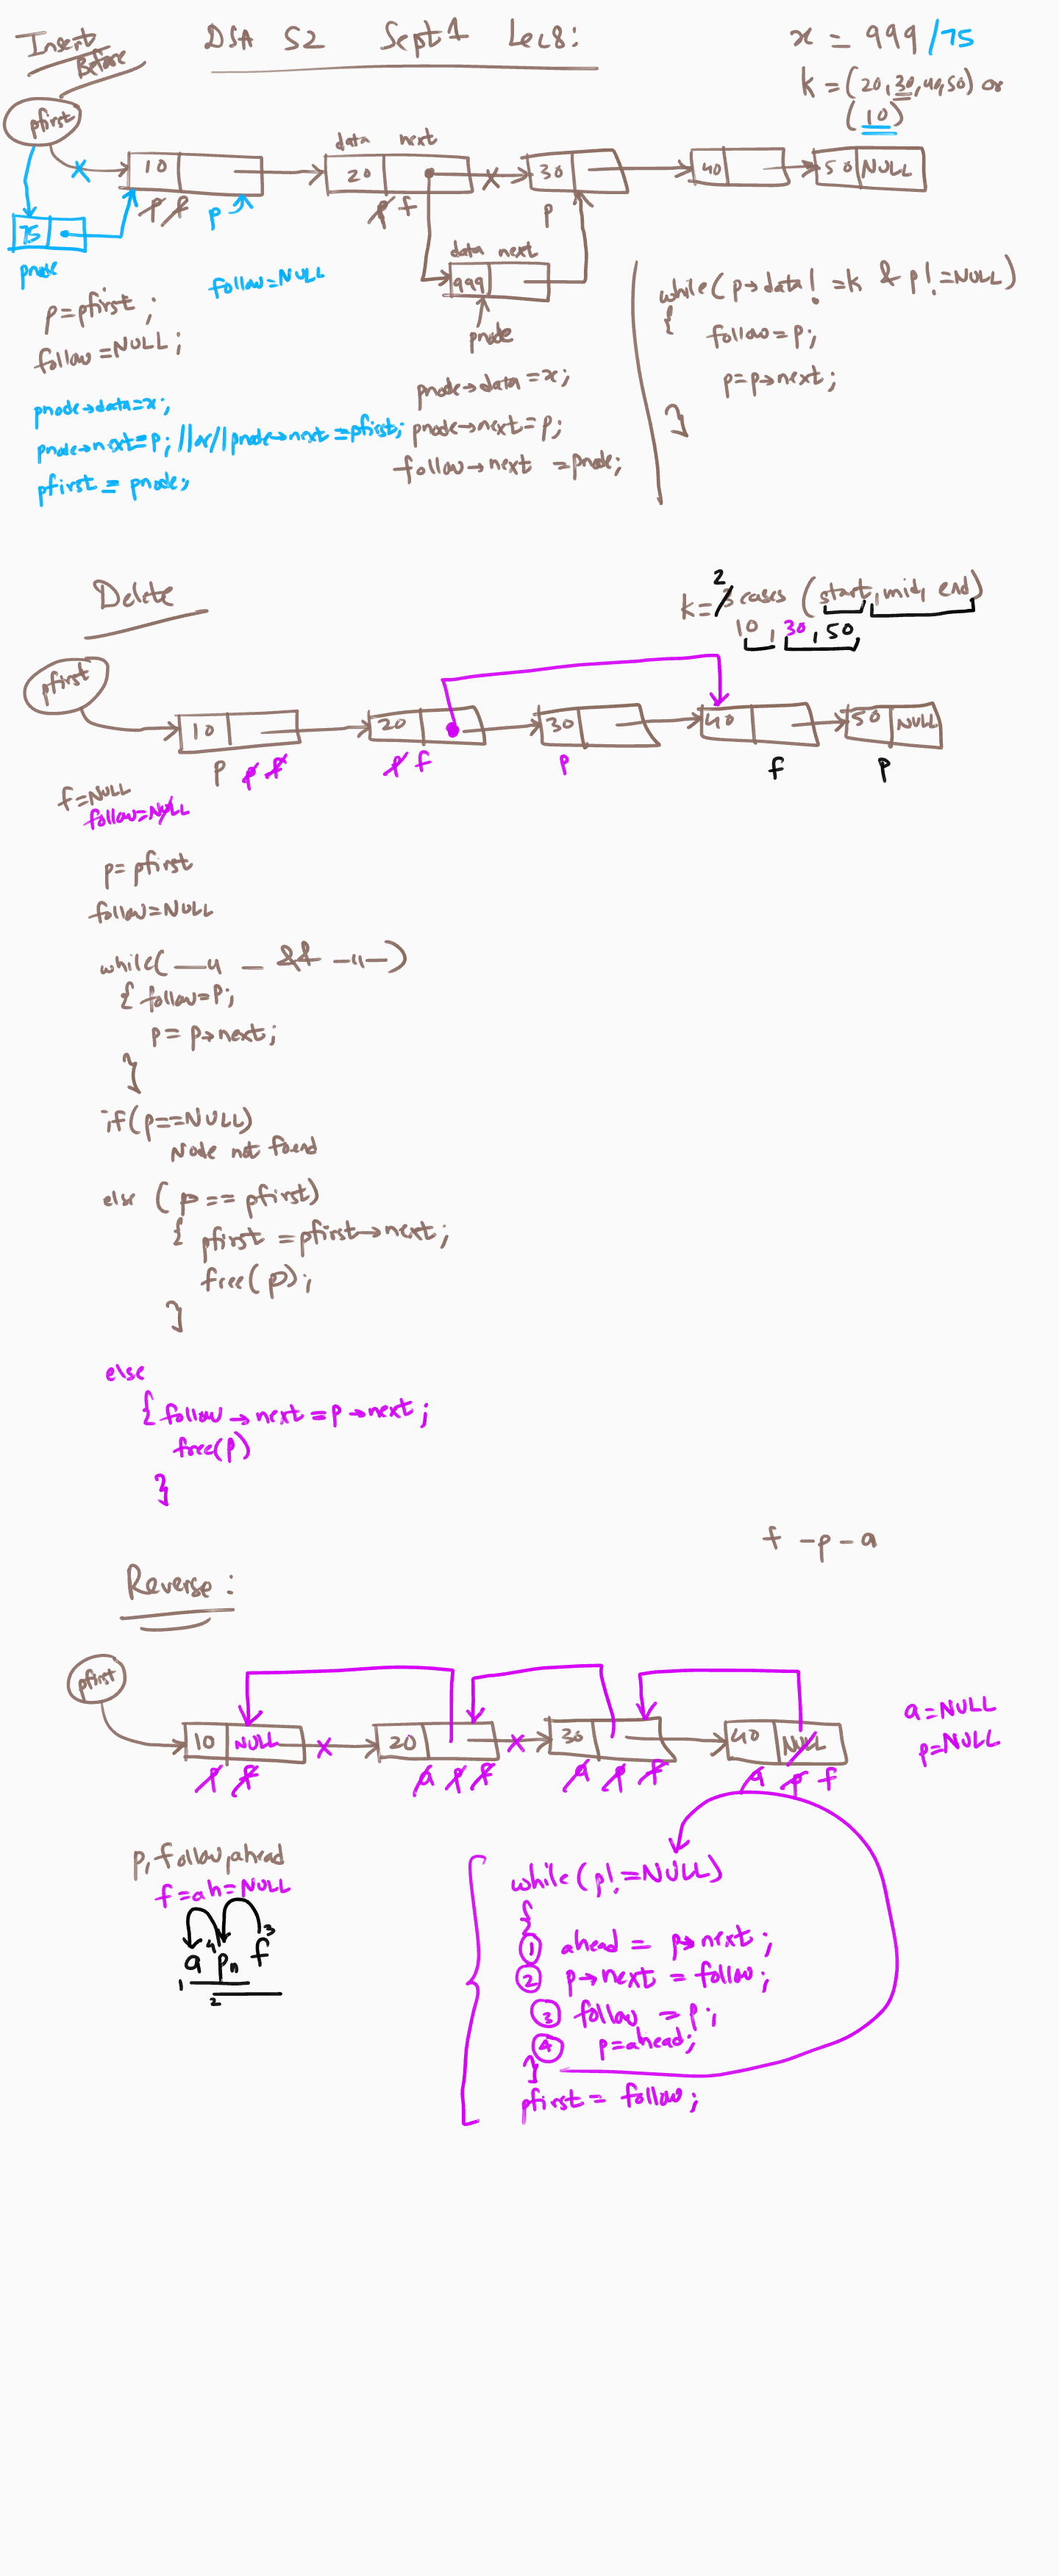 Insert
Before
DSA S2 Sept 1 Lec8:
x = 999/75
k = (20, 30, 40, 50) or
(10)
pfirst
data next
10
20
30
40
50 NULL
p f
p
p f
p
75
pnode
follow=NULL
data next
999
pnode
p=pfirst;
follow=NULL;
pnode→data=x;
pnode→next=p; //or// pnode→next=pfirst;
pfirst = pnode;
pnode→data=x;
pnode→next=p;
follow→next =pnode;
while(p→data!=k & p!=NULL)
{
follow=p;
p=p→next;
}
Delete
k=3 2 cases (start, mid, end)
10, 30, 50,
pfirst
10
20
30
40
50 NULL
p p f
p f
p
f
p
f=NULL
follow=NULL
p= pfirst
follow=NULL
while( —"— && —"— )
{ follow=P;
p= p→next;
}
if(p==NULL)
Node not found
else (p== pfirst)
{ pfirst =pfirst→next;
free(p);
}
else
{ follow→next=p→next;
free(p)
}
f -p-a
Reverse:
pfirst
10 NULL
20
30
40 NULL
a=NULL
p=NULL
p f
a p f
a p f
a p f
p, follow, ahead
f=ah=NULL
3
a 4 pn f
1
2
while(p!=NULL)
{
1 ahead = p→next;
2 p→next = follow;
3 follow =p;
4 p=ahead;
}
pfirst= follow;